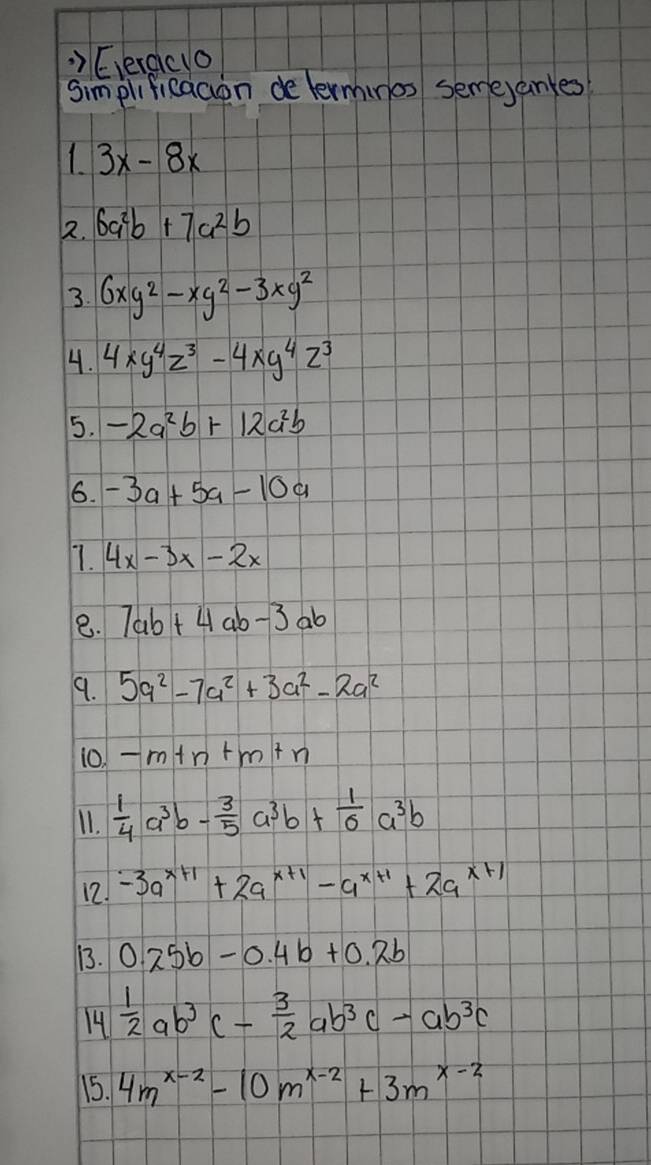 ·) Ejercicio
Simplificación de terminos semejantes:
1. 3x - 8x
2. 6a²b + 7a²b
3. 6xy² - xy² - 3xy²
4. 4xy⁴z³ - 4xy⁴z³
5. -2a²b + 12a²b
6. -3a + 5a - 10a
7. 4x - 3x - 2x
8. 7ab + 4ab - 3ab
9. 5a² - 7a² + 3a² - 2a²
10. -m + n + m + n
11. 1/4 a³b - 3/5 a³b + 1/6 a³b
12. -3a^(x+1) + 2a^(x+1) - a^(x+1) + 2a^(x+1)
13. 0.25b - 0.4b + 0.2b
14. 1/2 ab³c - 3/2 ab³c - ab³c
15. 4m^(x-2) - 10m^(x-2) + 3m^(x-2)